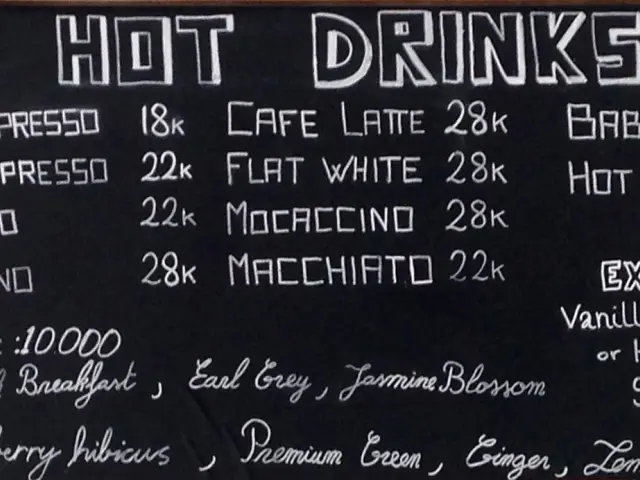 HOT DRINKS
PRESSO 18K CAFE LATTE 28K BAB
PRESSO 22K FLAT WHITE 28K HOT
O 22K MOCACCINO 28K
NO 28K MACCHIATO 22K EX
Vanill
: 10.000 or H
Breakfast, Earl Grey, Jasmine Blossom S
berry hibicus, Premium Green, Ginger, Lem